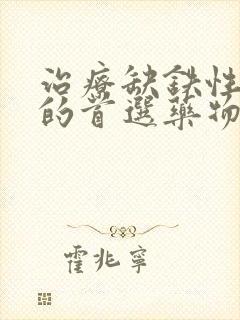 治療缺鉄性
的首選藥物
霍兆寧